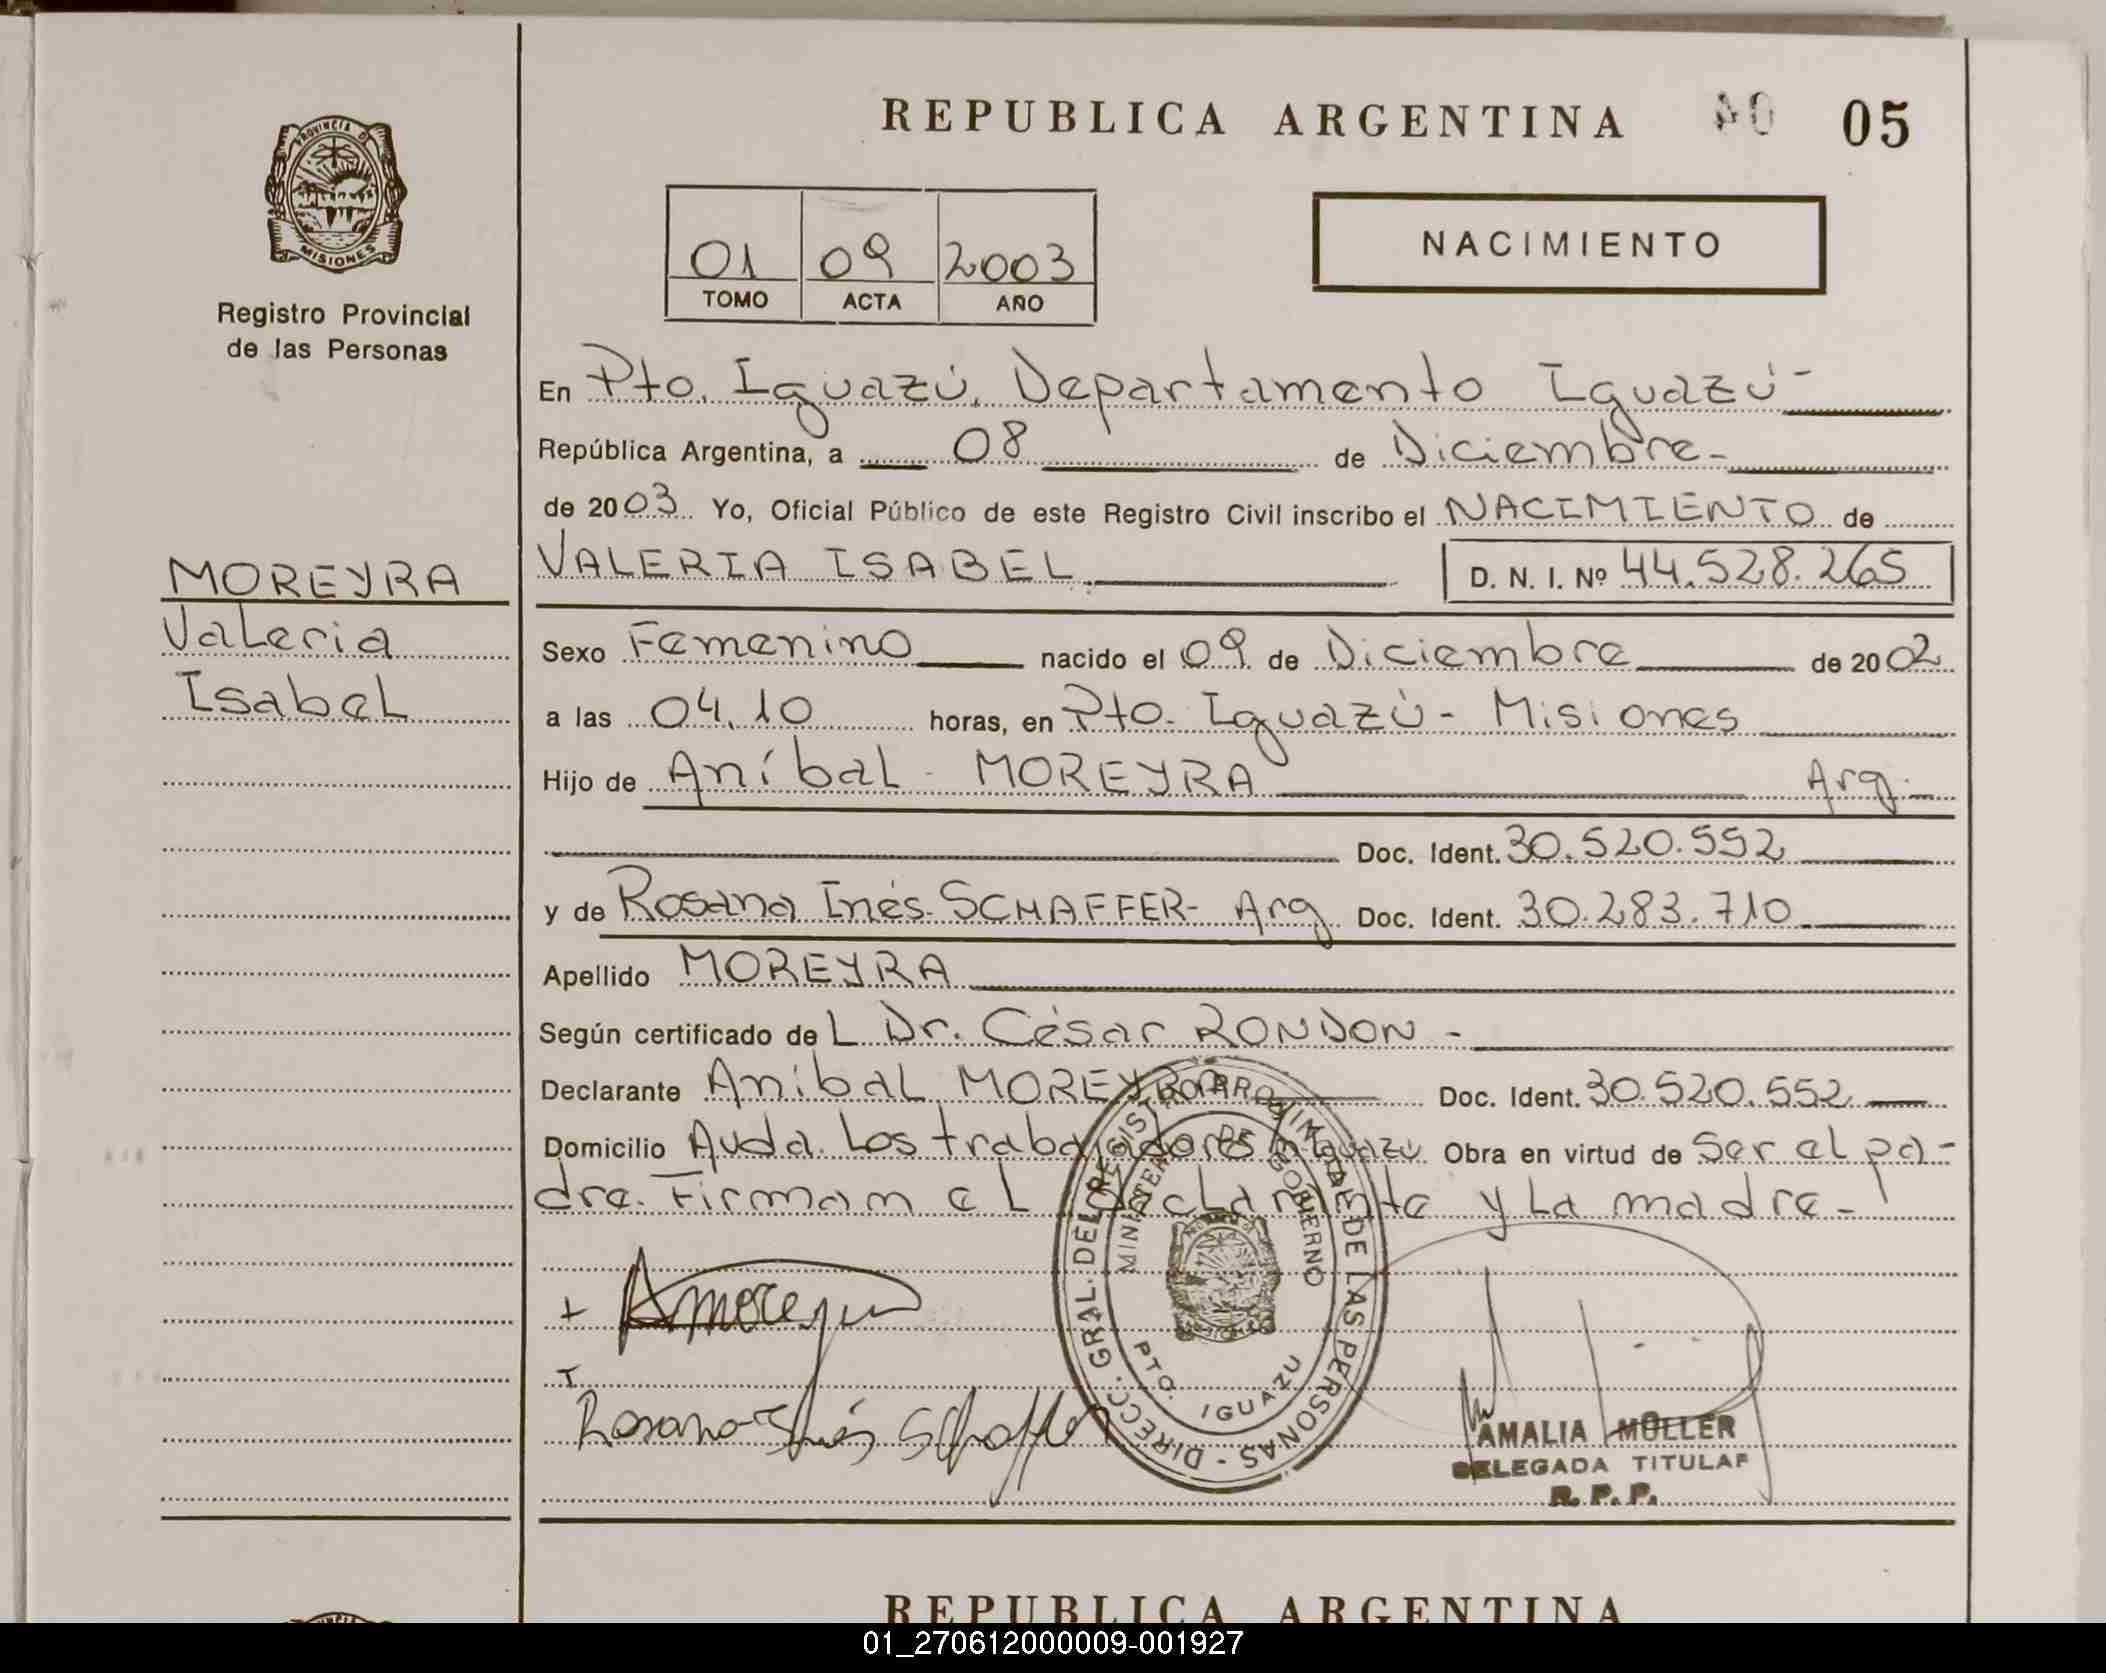 REPUBLICA ARGENTINA 05
PROVINCIA DE
MISIONES
Registro Provincial
de las Personas
01 09 2003
TOMO ACTA AÑO
NACIMIENTO
En Pto. Iguazú. Departamento Iguazú-
República Argentina, a 08 de Diciembre-
de 2003 Yo, Oficial Público de este Registro Civil inscribo el NACIMIENTO de
VALERIA ISABEL D. N. I. Nº 44.528.265
MOREYRA
Valeria
Isabel
Sexo Femenino nacido el 09 de Diciembre de 2002
a las 04.10 horas, en Pto. Iguazú- Misiones
Hijo de Aníbal MOREYRA Arg.
Doc. Ident. 30.520.552
y de Rosana Inés SCHAFFER- Arg Doc. Ident. 30.283.710
Apellido MOREYRA
Según certificado del Dr. César RONDON -
Declarante Aníbal MOREYRA Doc. Ident. 30.520.552
Domicilio Avda. Los trabajadores Iguazú Obra en virtud de Ser el pa-
dre. Firman el declarante y la madre-
AMoreyra
Rosana Inés Schaffer
DIRECC. GRAL. DEL REGISTRO PROVINCIAL DE LAS PERSONAS -
MINISTERIO DE GOBIERNO
PTO. IGUAZU
AMALIA MÜLLER
DELEGADA TITULAR
R. P. P.
REPUBLICA ARGENTINA
01_270612000009-001927